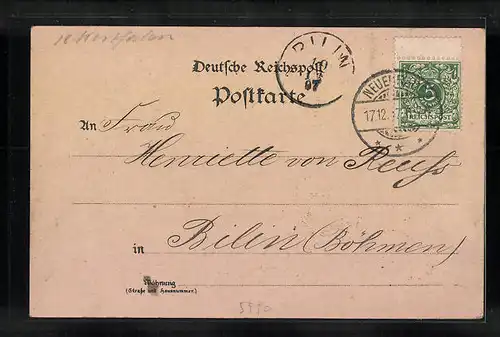 BILIN
97
Deutsche Reichspost
Postkarte
17.12.
5
REICHSPOST
An Frau
Henriette von Reuss
in Bilin (Böhmen)
Wohnung
(Straße und Hausnummer)